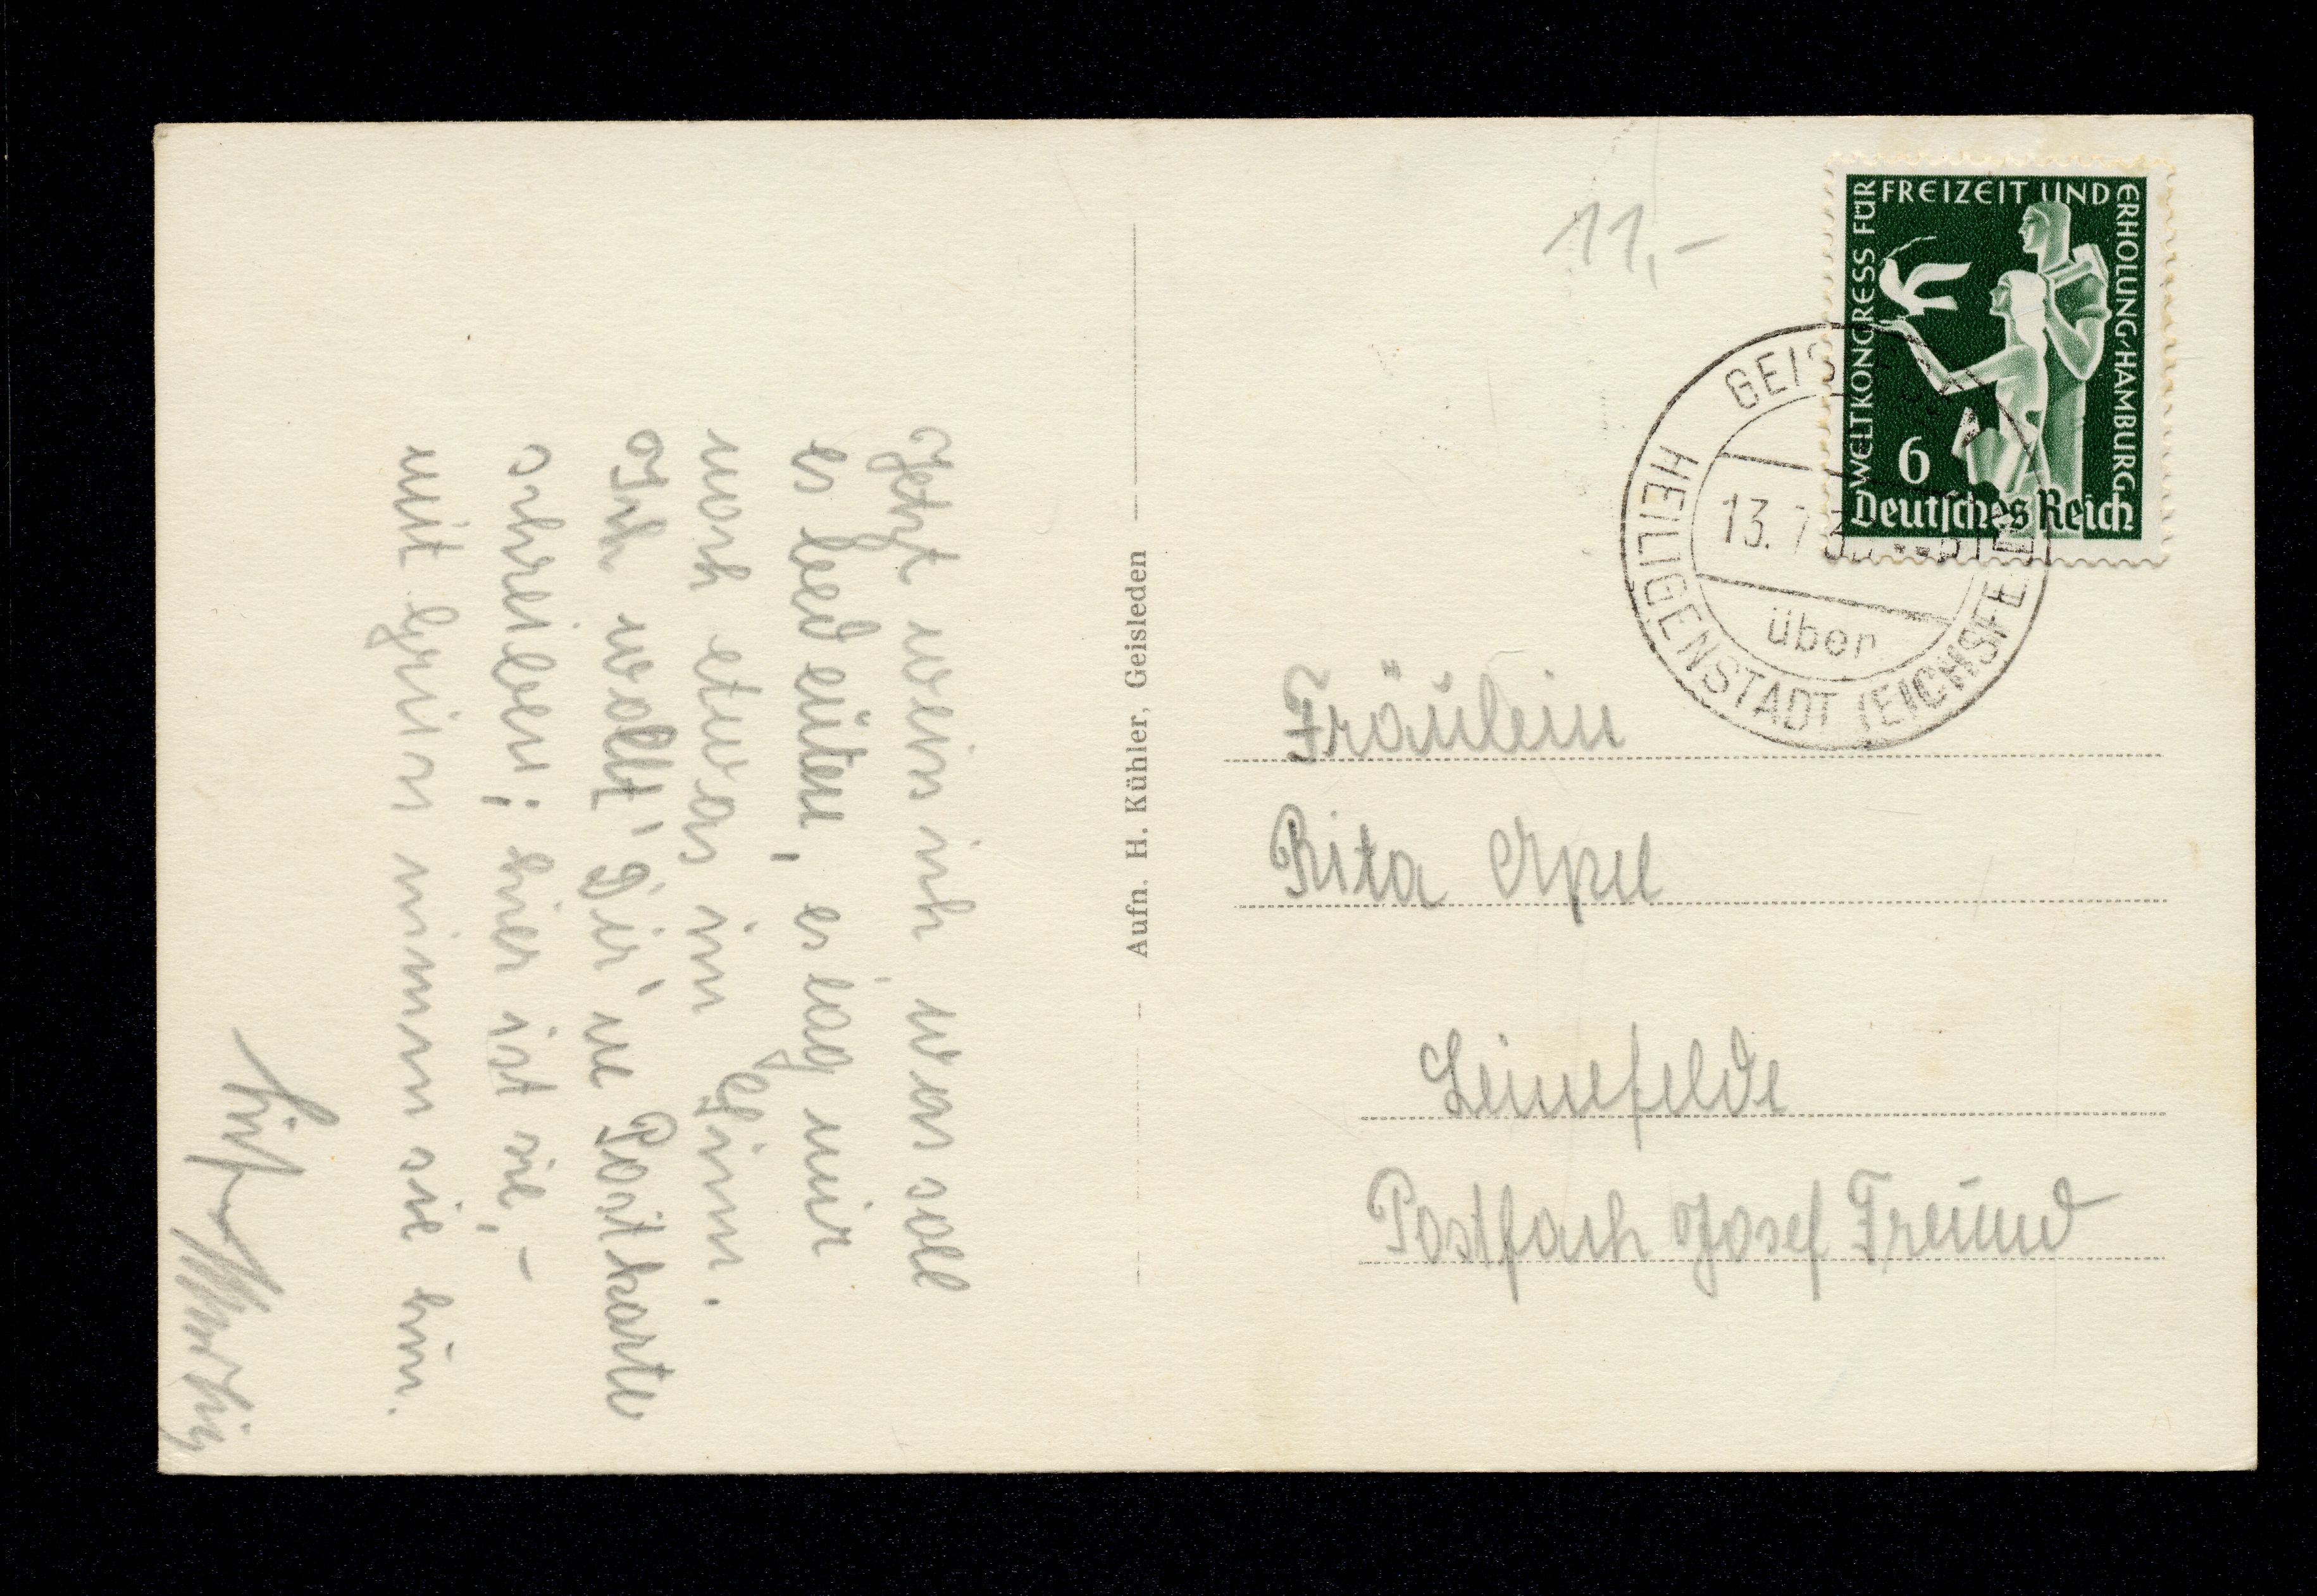 Jetzt weis ich, was soll
es bedeuten, es lag mir
noch etwas im Sinn.
Ich wollt' Dir 'ne Postkarte
schreiben; hier ist sie, –
mit Gruss nimm sie hin.
Aufn. H. Kühler, Geisleden
11,-
WELTKONGRESS FÜR FREIZEIT UND ERHOLUNG · HAMBURG
6
Deutsches Reich
13. 7
über
HEILIGENSTADT (EICHSFELD)
Fräulein
Rita
Leinefelde
Postfach Josef Freund